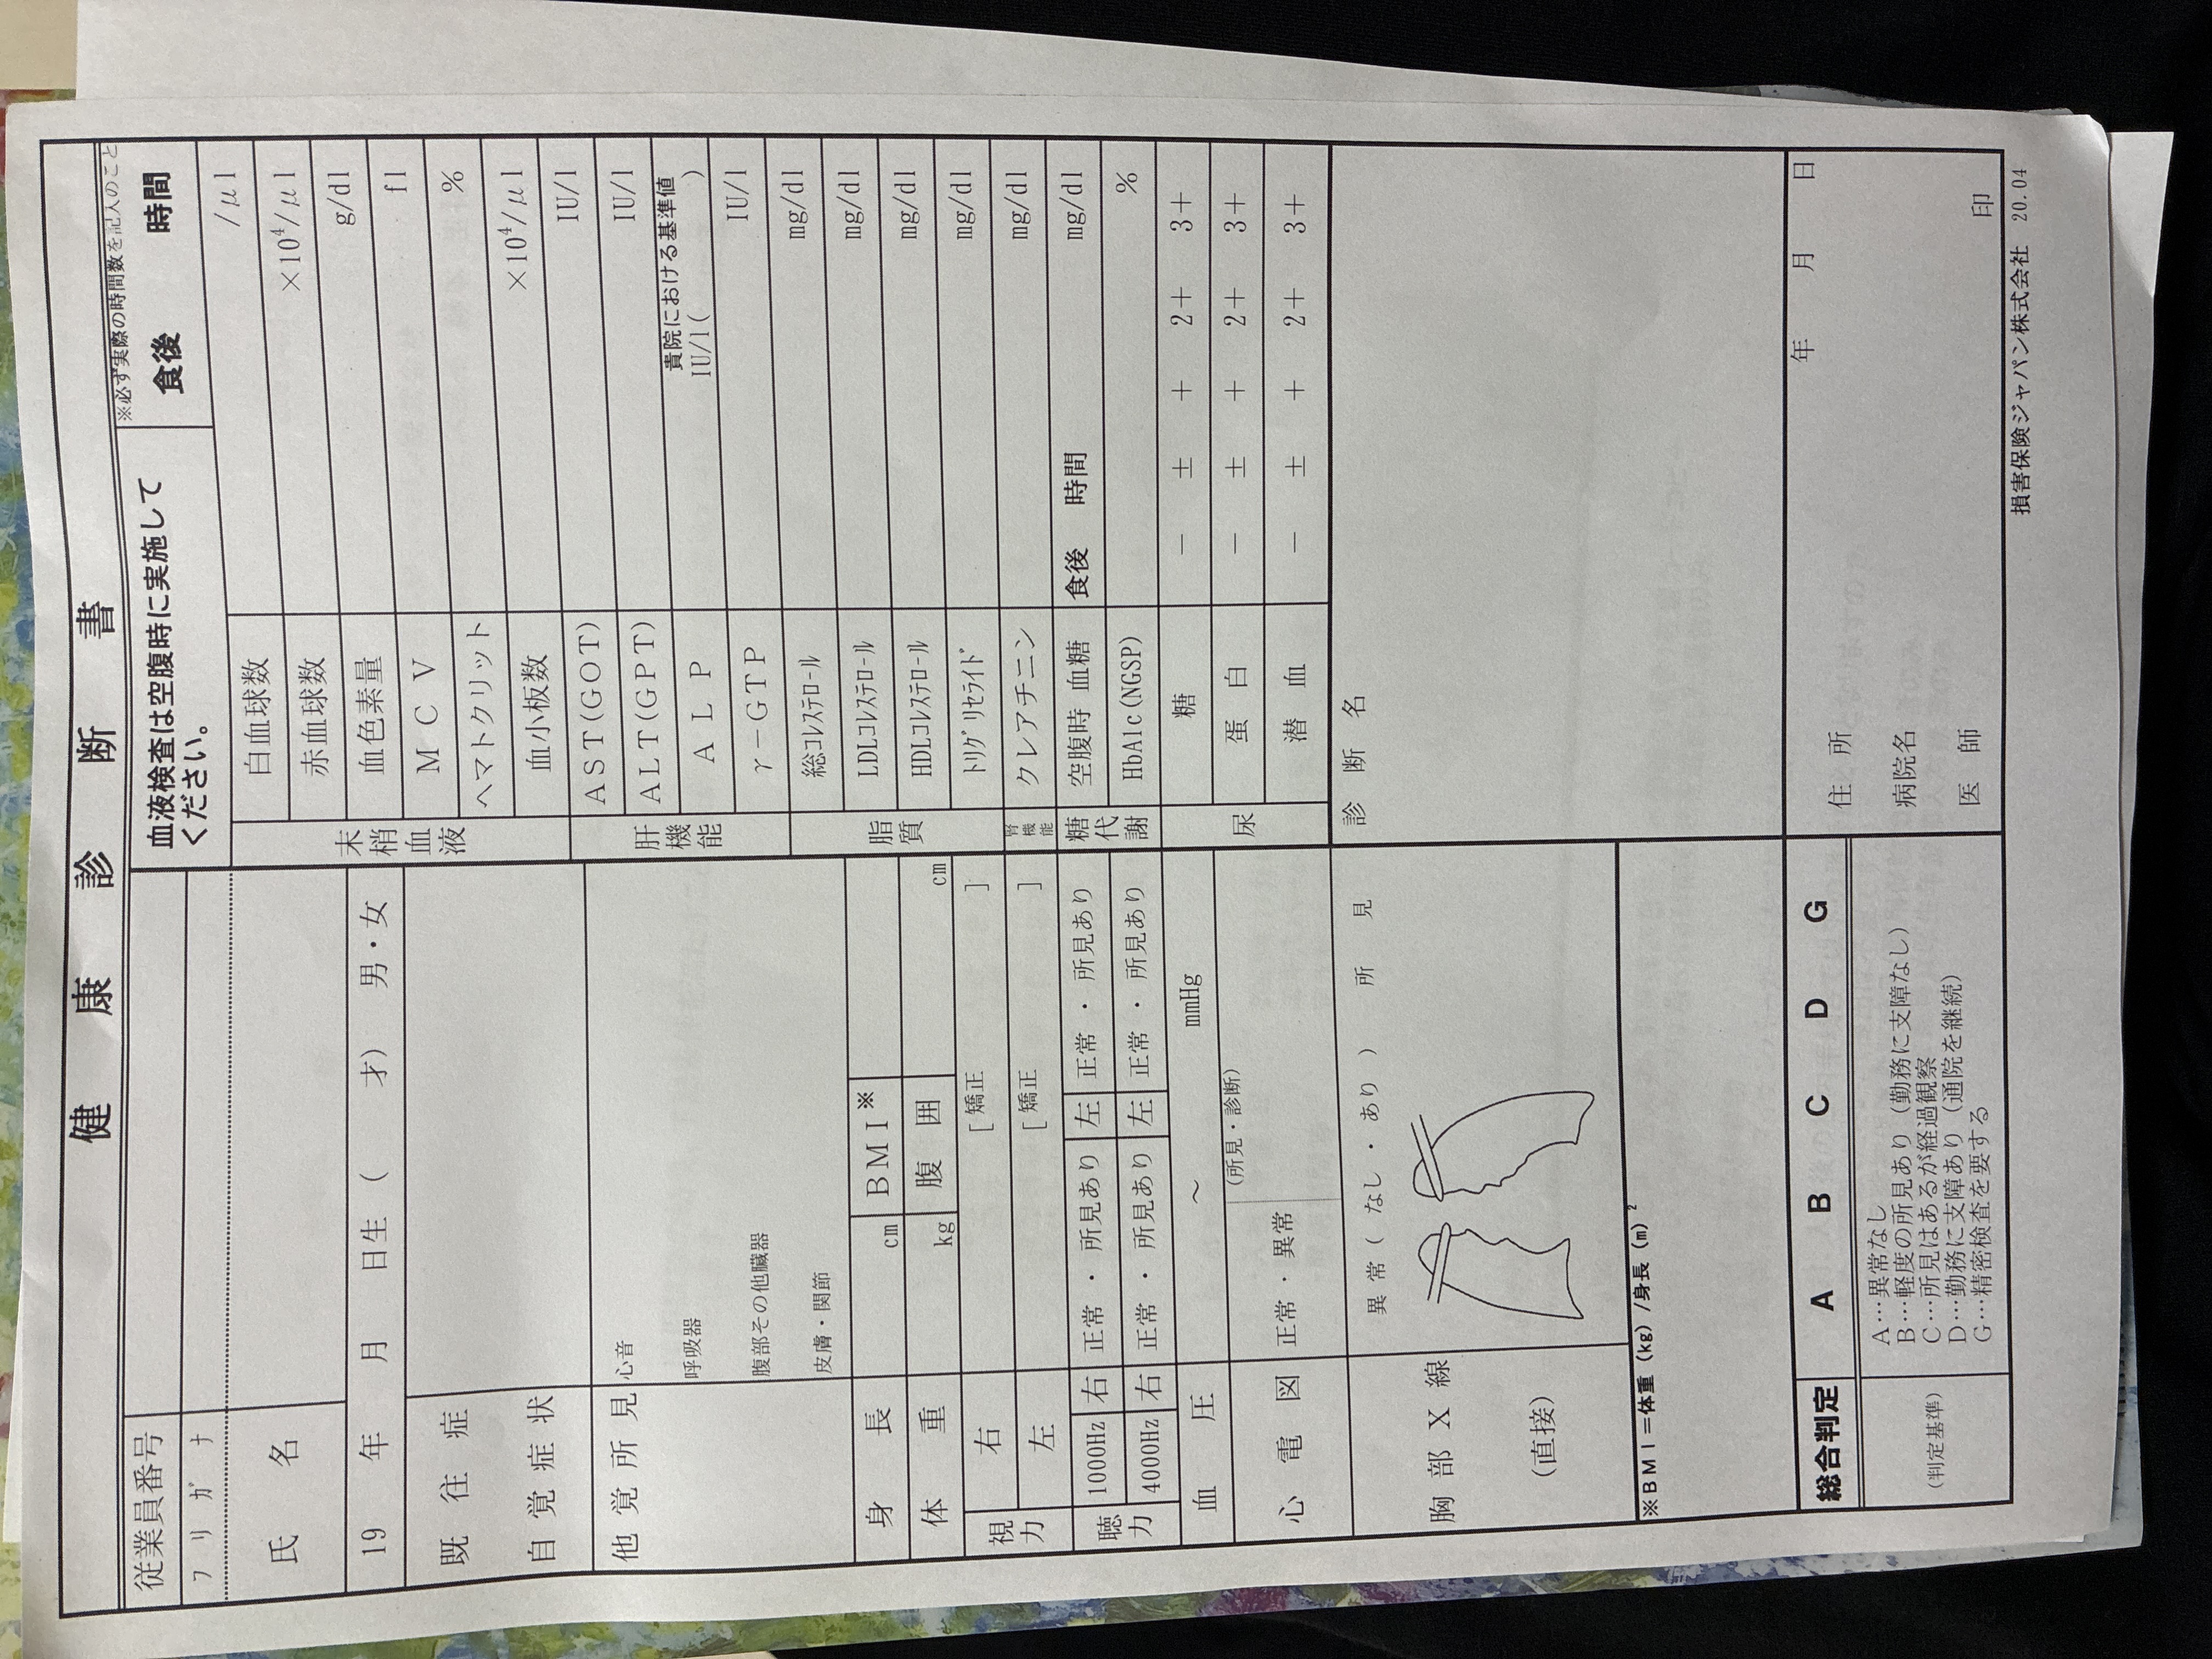 健康診断書
従業員番号
フリガナ
氏名
19 年 月 日生 ( 才) 男・女
既往症
自覚症状
他覚所見
心音
呼吸器
腹部その他臓器
皮膚・関節
身長 cm BMI※
体重 kg 腹囲 cm
視力 右 [矯正 ]
左 [矯正 ]
聴力 1000Hz 右 正常・所見あり 左 正常・所見あり
4000Hz 右 正常・所見あり 左 正常・所見あり
血圧 ～ mmHg
心電図 正常・異常 (所見・診断)
胸部X線
(直接)
異常(なし・あり) 所見
※BMI=体重(kg)/身長(m)2
総合判定 A B C D G
(判定基準)
A…異常なし
B…軽度の所見あり(勤務に支障なし)
C…所見はあるが経過観察
D…勤務に支障あり(通院を継続)
G…精密検査を要する
血液検査は空腹時に実施して
ください。
※必ず実際の時間数を記入のこと
食後 時間
末梢血液
白血球数 /μl
赤血球数 ×10⁴/μl
血色素量 g/dl
MCV fl
ヘマトクリット %
血小板数 ×10⁴/μl
肝機能
AST(GOT) IU/l
ALT(GPT) IU/l
ALP 貴院における基準値
IU/l( )
γ-GTP IU/l
脂質
総コレステロール mg/dl
LDLコレステロール mg/dl
HDLコレステロール mg/dl
トリグリセライド mg/dl
腎機能 クレアチニン mg/dl
糖代謝
空腹時血糖 食後 時間 mg/dl
HbA1c(NGSP) %
尿
糖 － ± ＋ 2＋ 3＋
蛋白 － ± ＋ 2＋ 3＋
潜血 － ± ＋ 2＋ 3＋
診断名
年 月 日
住所
病院名
医師 印
損害保険ジャパン株式会社 20.04